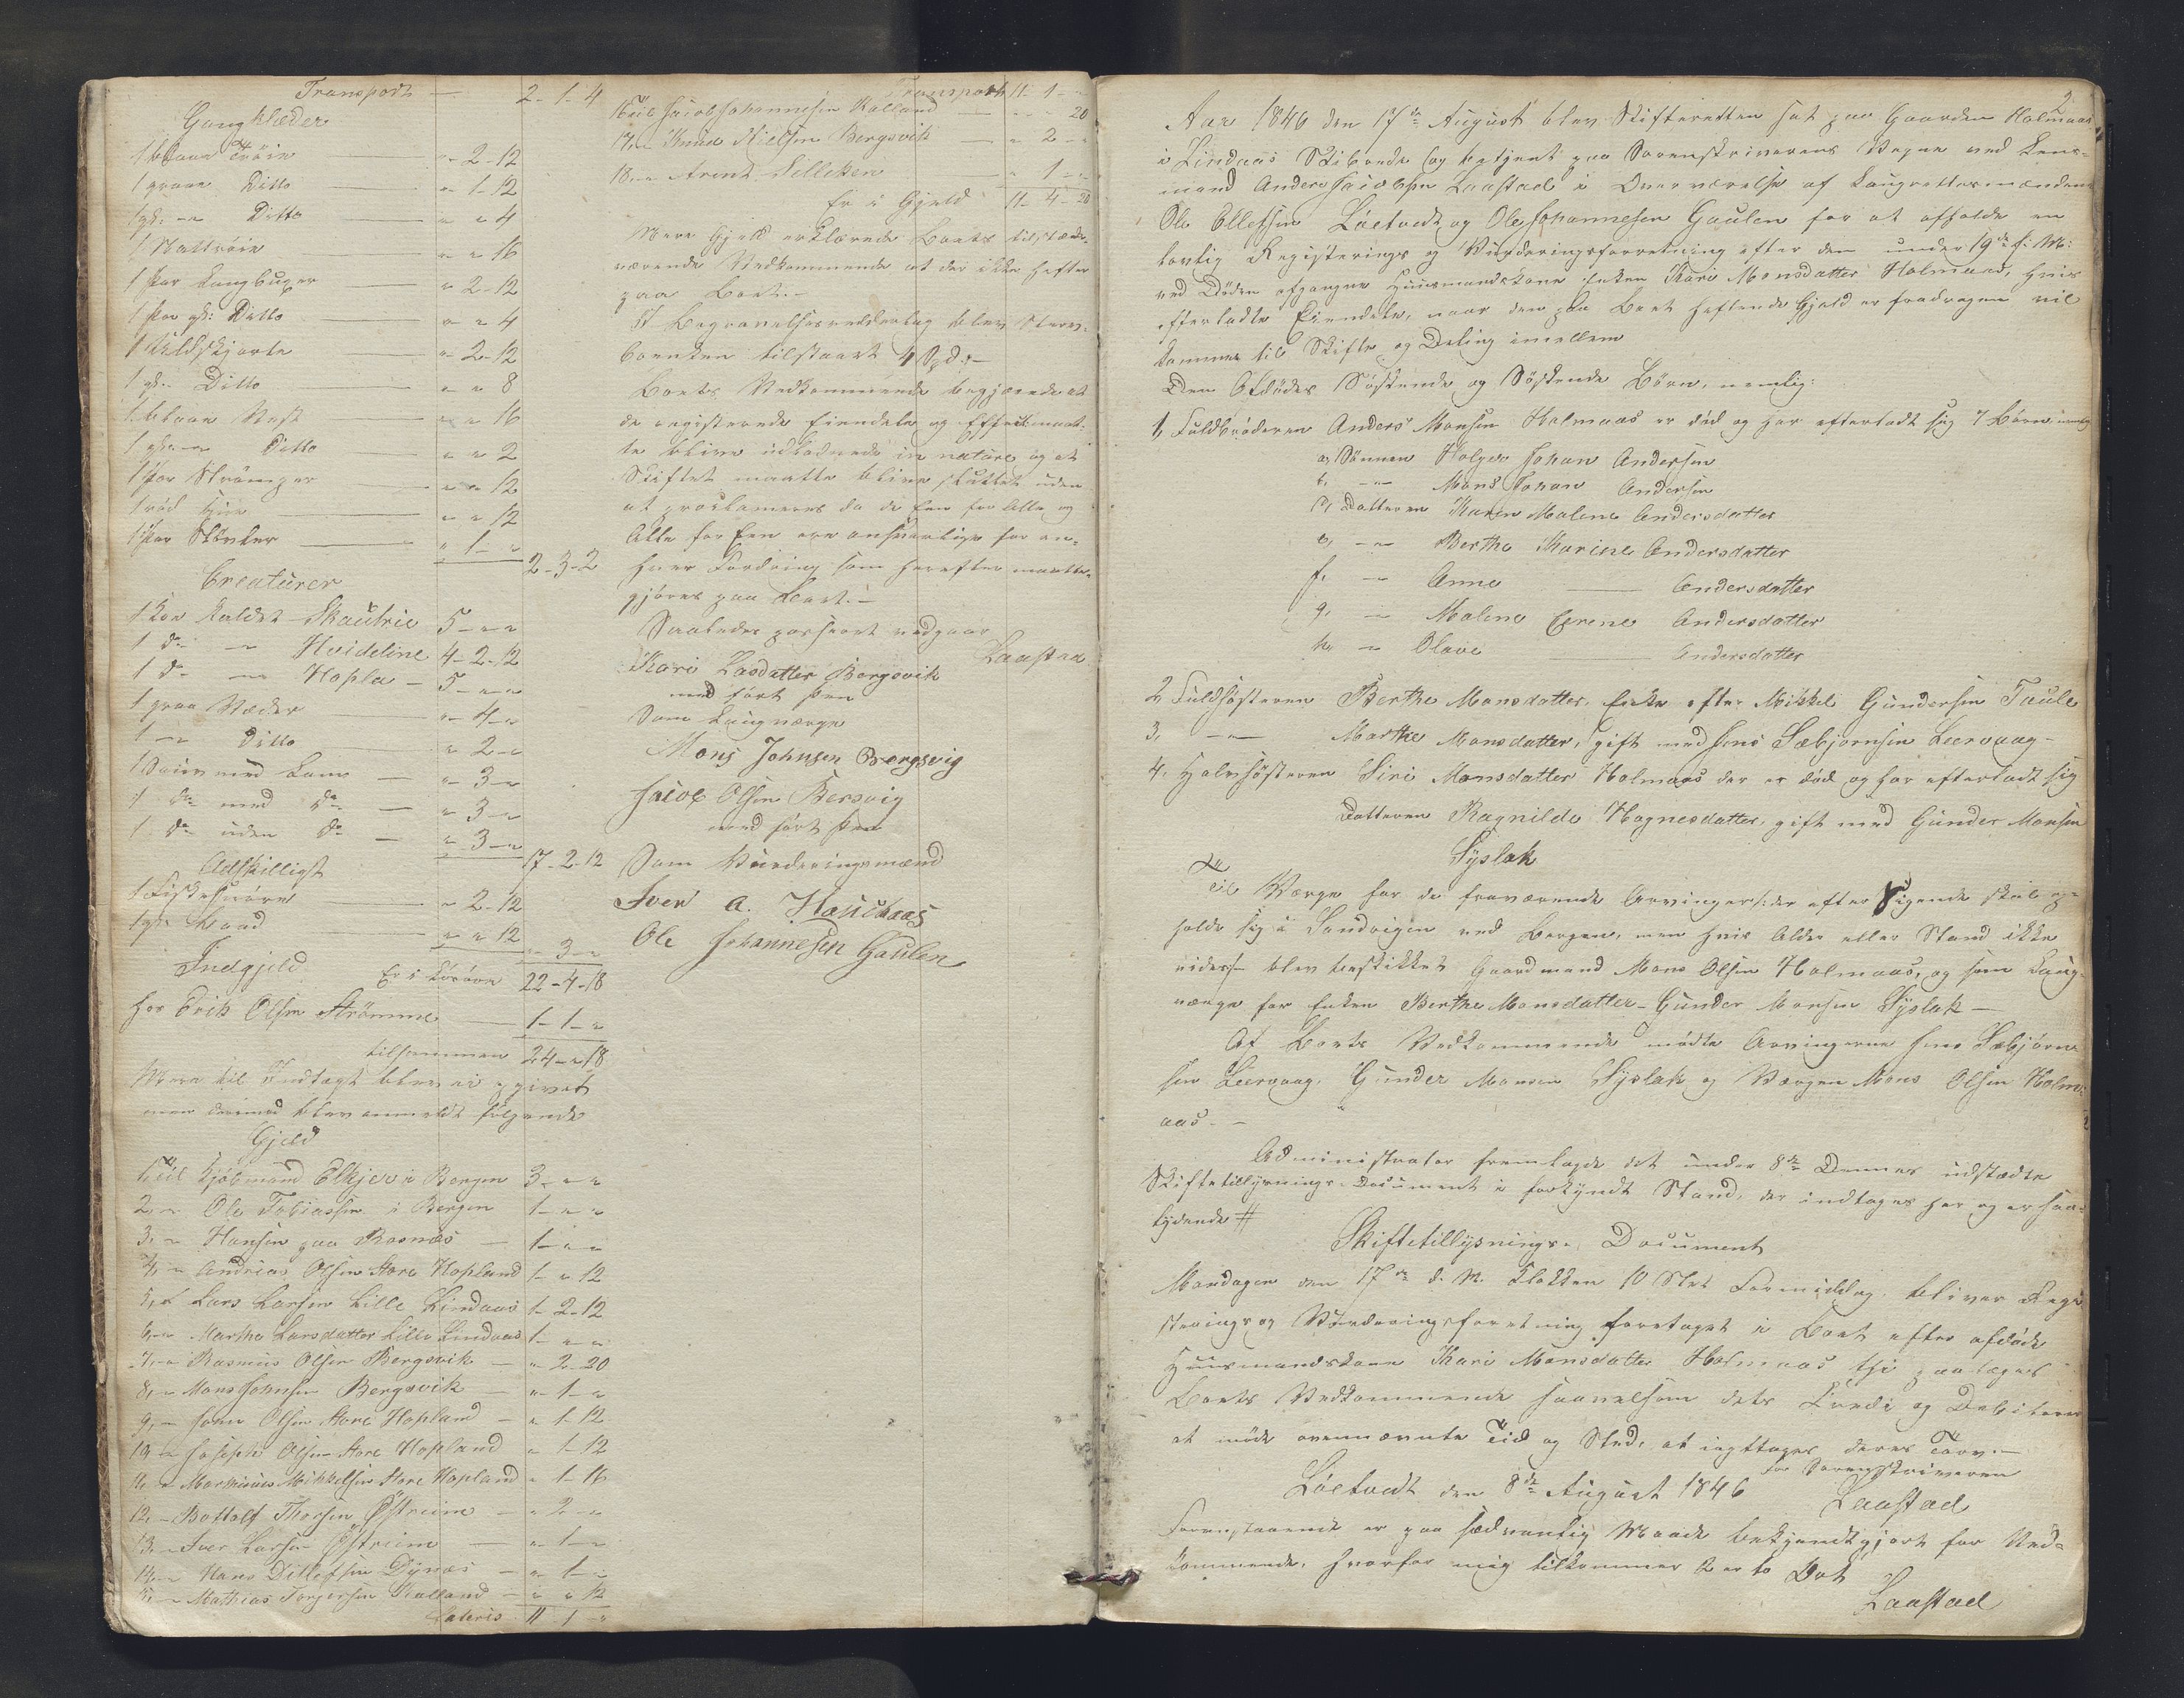 Transport — 2 - 1 - 4
Gangklæder
1 blaae Trøie — " - 2 - 12
1 graae Ditto — " - 1 - 12
1 gl: — Ditto — " " 4
1 Nattrøie — " " 16
1 Par Langbuxer — " 2 - 12
1 Par gl: Ditto — " " 4
1 Uldskjorte — " 2 - 12
1 gl: Ditto — " " 8
1 blaae Vest — " " 16
1 gl: Ditto — " " 2
1 Par Strømper — " " 12
1 rød — " " 12
1 Par Støvler — " 1 - "
2 - 3 - 2
Creaturer
1 Koe kaldet Skautrie 5 - " - "
1 do — Hvideline 4 - 2 - 12
1 do — Hopla — 5 - " - "
1 graa Væder — " 4 - "
1 — Ditto — " 2 - "
1 Souv med Lam — " 3 - "
1 do med do — " 3 - "
1 do uden do — " 3 - "
17 - 2 - 12
Adskilligt
1 Fiskesnøre — " 2 - 12
1 gl: — " " 12
" 3 - "
Indgjeld
Er i Løsøre 22 - 4 - 18
hos Erik Olsen Strømme — 1 - 1 - "
tilsammen 24 - " 18
Mere til Indtægt blev ei opgivet
men derimod blev anmeldt følgende
Gjeld
1, til Kjøbmand Elkjer i Bergen 3 - " "
2, " Ole Tobiassen i Bergen 1 - " "
3, " Hansen paa Rosnæs — 1 - " "
4, " Andreas Olsen Store Hopland 1 - " 12
5, " Lars Larsen Lille Lindaas 1 - 2 - 12
6, " Marthe Larsdatter Lille Lindaas 1 - " "
7, " Rasmus Olsen Bergsvik — " 2 - 20
8, " Mons Johnsen Bergsvik — " 1 - "
9, — Olsen Store Hopland — " 1 - 12
10 " Joseph Olsen Store Hopland — " 1 - 12
11, " Markuus Mikkelsen Store Hopland " 1 - 16
12, — Bottolf Thorsen Østreim — " 2 - "
13, " Iver Larsen Østreim — " 1 - "
14, " Hans Ditlefsen Dynæs — " 1 - "
15, " Mathias Torgersen Kalland — " " 12
Lateris 11 - 1 - "
Transport 11 - 1 - "
16 til Jacob Johannesen Kalland — " - " 20
17, " Knud Nielsen Bergsvik — " 2 - "
18, " Arent Silleken — " 1 - "
Er i Gjeld 11 - 4 - 20
Mere Gjeld erklærede Boets tilstæde-
værende Vedkommende at der ikke hefter
paa Boet. —
I Begravelsesudlæg blev Sterv-
boenken tilstaaet 4 Spd: —
Boets Vedkommende begjærede at
de registrerede Eiendele og Effecter maat-
te blive udlodnede in natura og at
Skiftet maatte blive sluttet uden
at proclameres da de Een for Alle og
Alle for Een ere ansvarlige for en-
hver Fordring som herefter maatte
gjøres paa Boet. —
Saaledes passeret vedgaar
Laastad
Kari Lasdatter Bergsvik
med ført Pen
Som Laugværge
Mons Johnsen Borgsvig
Jacob Olsen Bersvig
med ført Pen
Som Vurderingsmænd
Iver A. Hauchaas
Ole Johannesen Gaulen
2
Aar 1846 den 17de August blev Skifteretten sat paa Gaarden Holmaas
i Lindaas Skibrede og betjent paa Sorenskriverens Vegne ved Lens-
mand Anders Jacobsen Laastad i Overværelse af Laugrettesmændene
Ole Ellefsen Løetvedt og Ole Johannesen Gaulen for at afholde en
lovlig Registerings og Vurderingsforretning efter den under 19de f. M:
ved Døden afgangne Huusmandskone Enken Kari Monsdatter Holmaas, hvis
efterladte Eiendele, naar den paa Boet heftende Gjeld er fradragen vil
komme til Skifte og Deling imellem
Den Afdødes Søskende og Søskende Børn, nemlig:
1, Fuldbroderen Anders Monsen Holmaas er død og har efterladt sig 7 Børn nemlig
a, Sønnen Holger Johan Andersen
b, — Mons Johan Andersen
c, Datteren Karen Malene Andersdatter
e, — Berthe Karine Andersdatter
f, — Anne — Andersdatter
g, — Malene Serene Andersdatter
h, — Olave — Andersdatter
2, Fuldsøsteren Berthe Monsdatter, Enke efter Mikkel Gundersen Taule
3, — Marthe Monsdatter, gift med Jens Sæbjørnsen Leervaag —
4, Halvsøsteren Siri Monsdatter Holmaas der er død og har efterladt sig
Datteren Ragnilde Hagnesdatter, gift med Gunder Monsen
Syslak
Til Værge for de fraværende Arvinger der efter Sigende skal op-
holde sig i Sandvigen ved Bergen, men hvis Alder eller Stand ikke
vides, blev beskikket Gaardmand Mons Olsen Holmaas, og som Laug-
værge for Enken Berthe Monsdatter — Gunder Monsen Syslak —
Af Boets Vedkommende mødte Arvingerne Jens Sæbjørn-
sen Leervaag, Gunder Monsen Syslak og Værgen Mons Olsen Holm-
aas. —
Administrator fremlagde det under 8de Dennes udstædte
Skiftetillysnings-Document i forkyndt Stand, der indtages her og er saa-
lydende #
Skiftetillysnings-Document
Mandagen den 17de d. M. Klokken 10 Slet Formiddag bliver Regi-
sterings og Vurderingsforretning foretaget i Boet efter afdøde
Huusmandskone Kari Monsdatter Holmaas thi paalægges
Boets Vedkommende saavelsom dets Credi og Debitorer
at møde ovennævnte Tid og Sted, at iagttage deres Tarv. —
Løetvedt den 8de August 1846 for Sorenskriveren
Laastad
Foranstaaende er paa sædvanlig Maade bekjendtgjort for Ved-
kommende, hvorfor mig tilkommer 2 er to Ort
Laastad